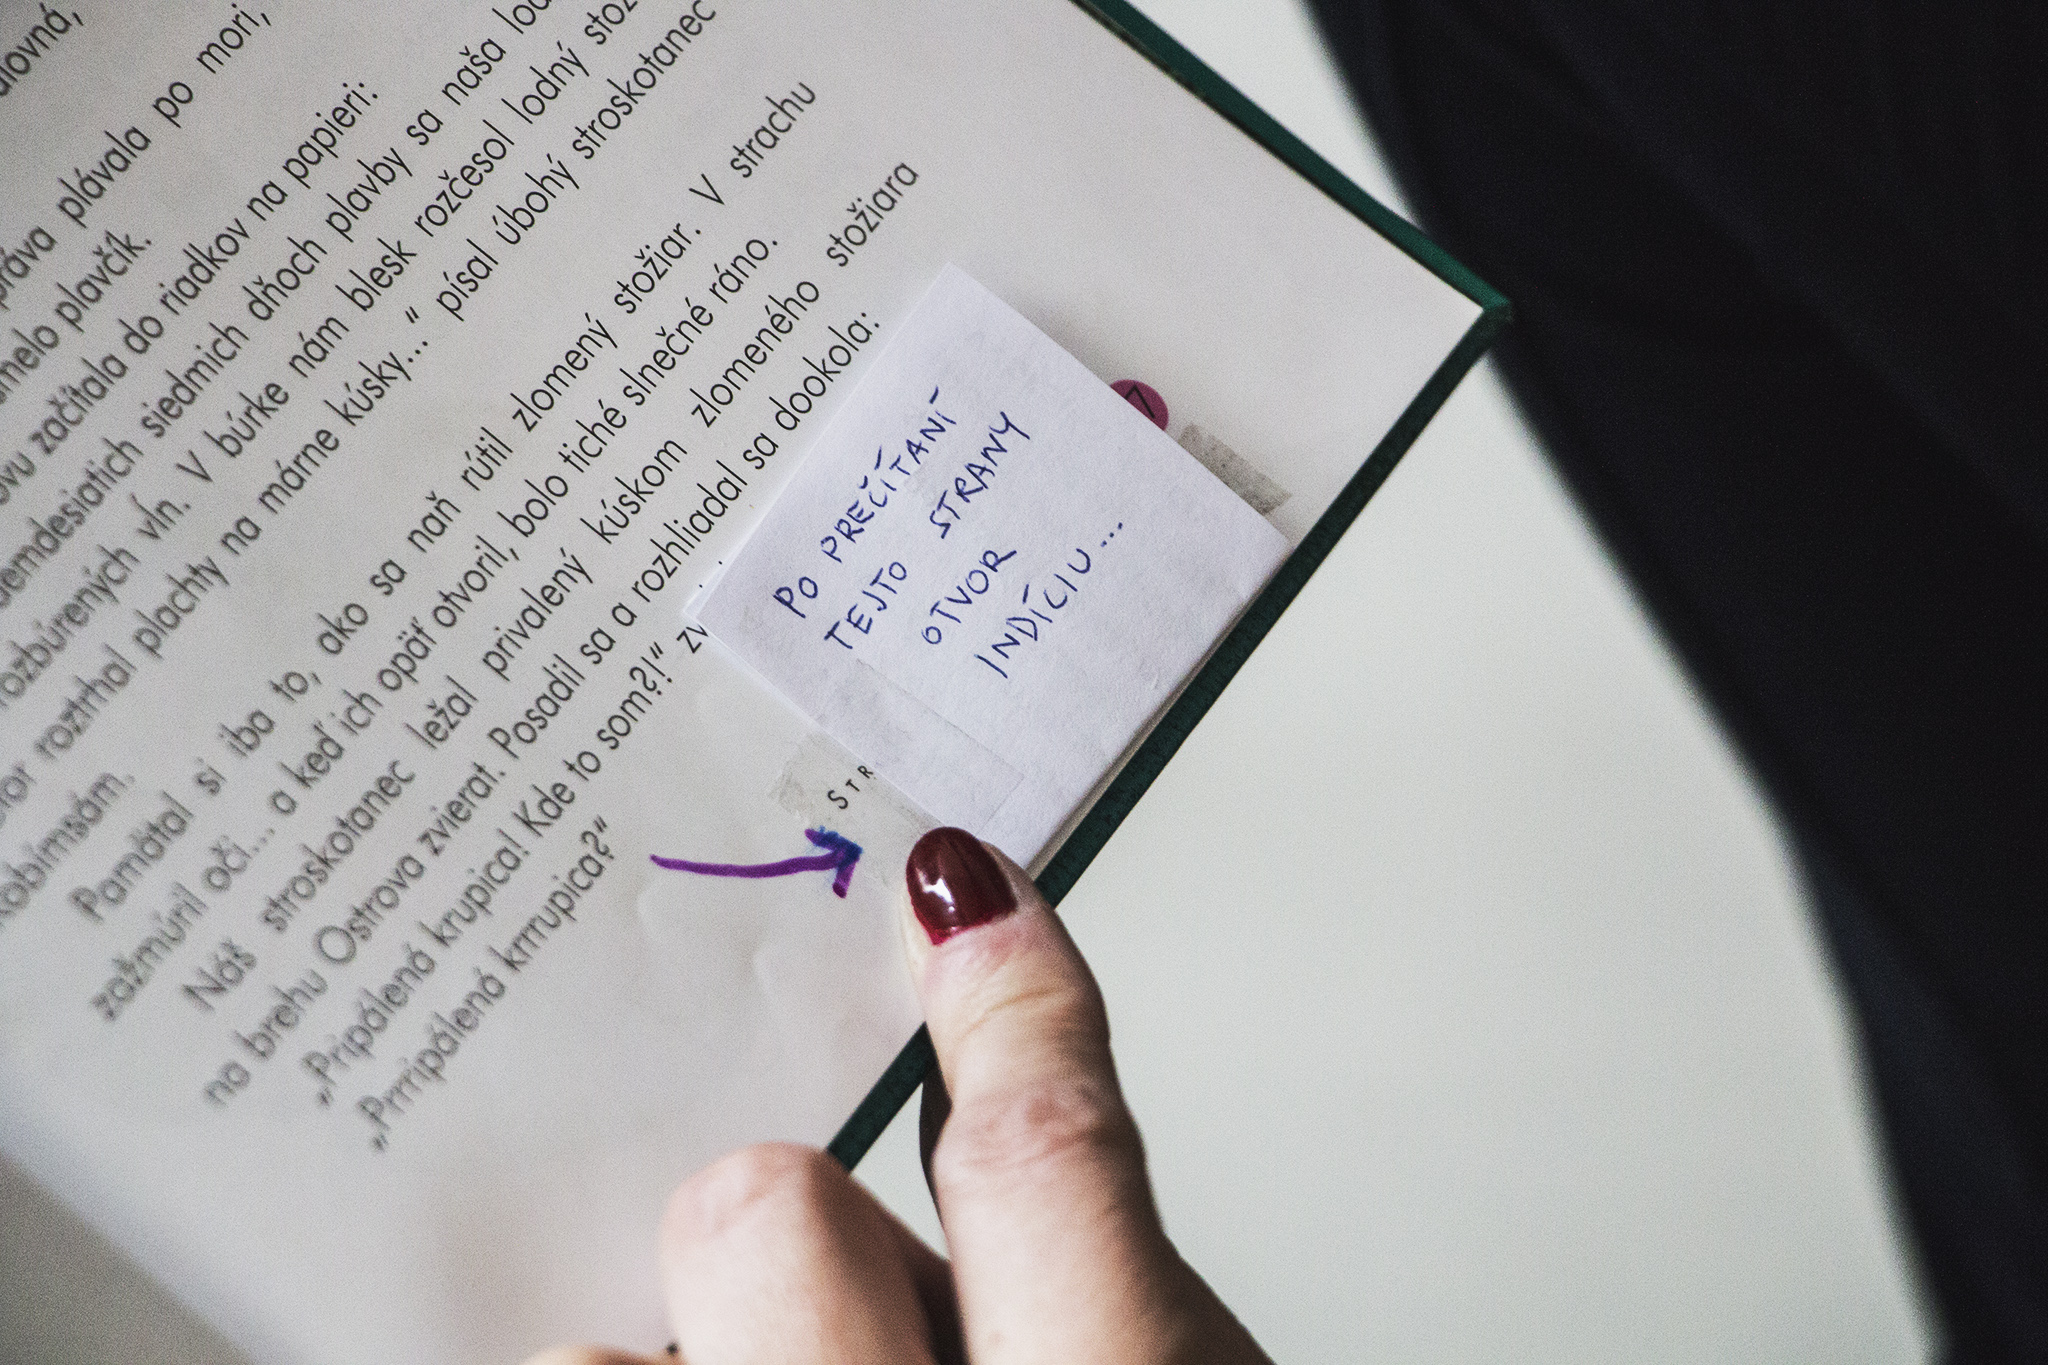 plávala po mori,
plavčík.
začítala do riadkov na papieri:
siedmich dňoch plavby sa naša
rozbúrených vĺn. V búrke nám blesk rozčesol lodný
roztrhal plachty na márne kúsky...“ písal úbohý stroskotanec
Pamätal si iba to, ako sa naň rútil zlomený stožiar. V strachu
zažmúril oči... a keď ich opäť otvoril, bolo tiché slnečné ráno.
Náš stroskotanec ležal privalený kúskom zlomeného stožiara
na brehu Ostrova zvierat. Posadil sa a rozhliadal sa dookola:
„Pripálená krupica! Kde to som?!“
„Prrripálená krrrupica?“
PO PREČÍTANÍ
TEJTO STRANY
OTVOR
INDÍCIU...
7